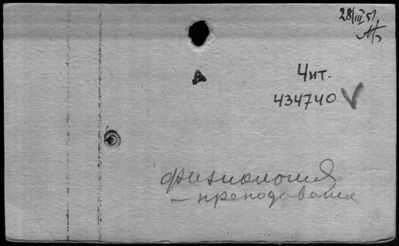 28/III 51
Чит.
434740
физиология
– преподавание